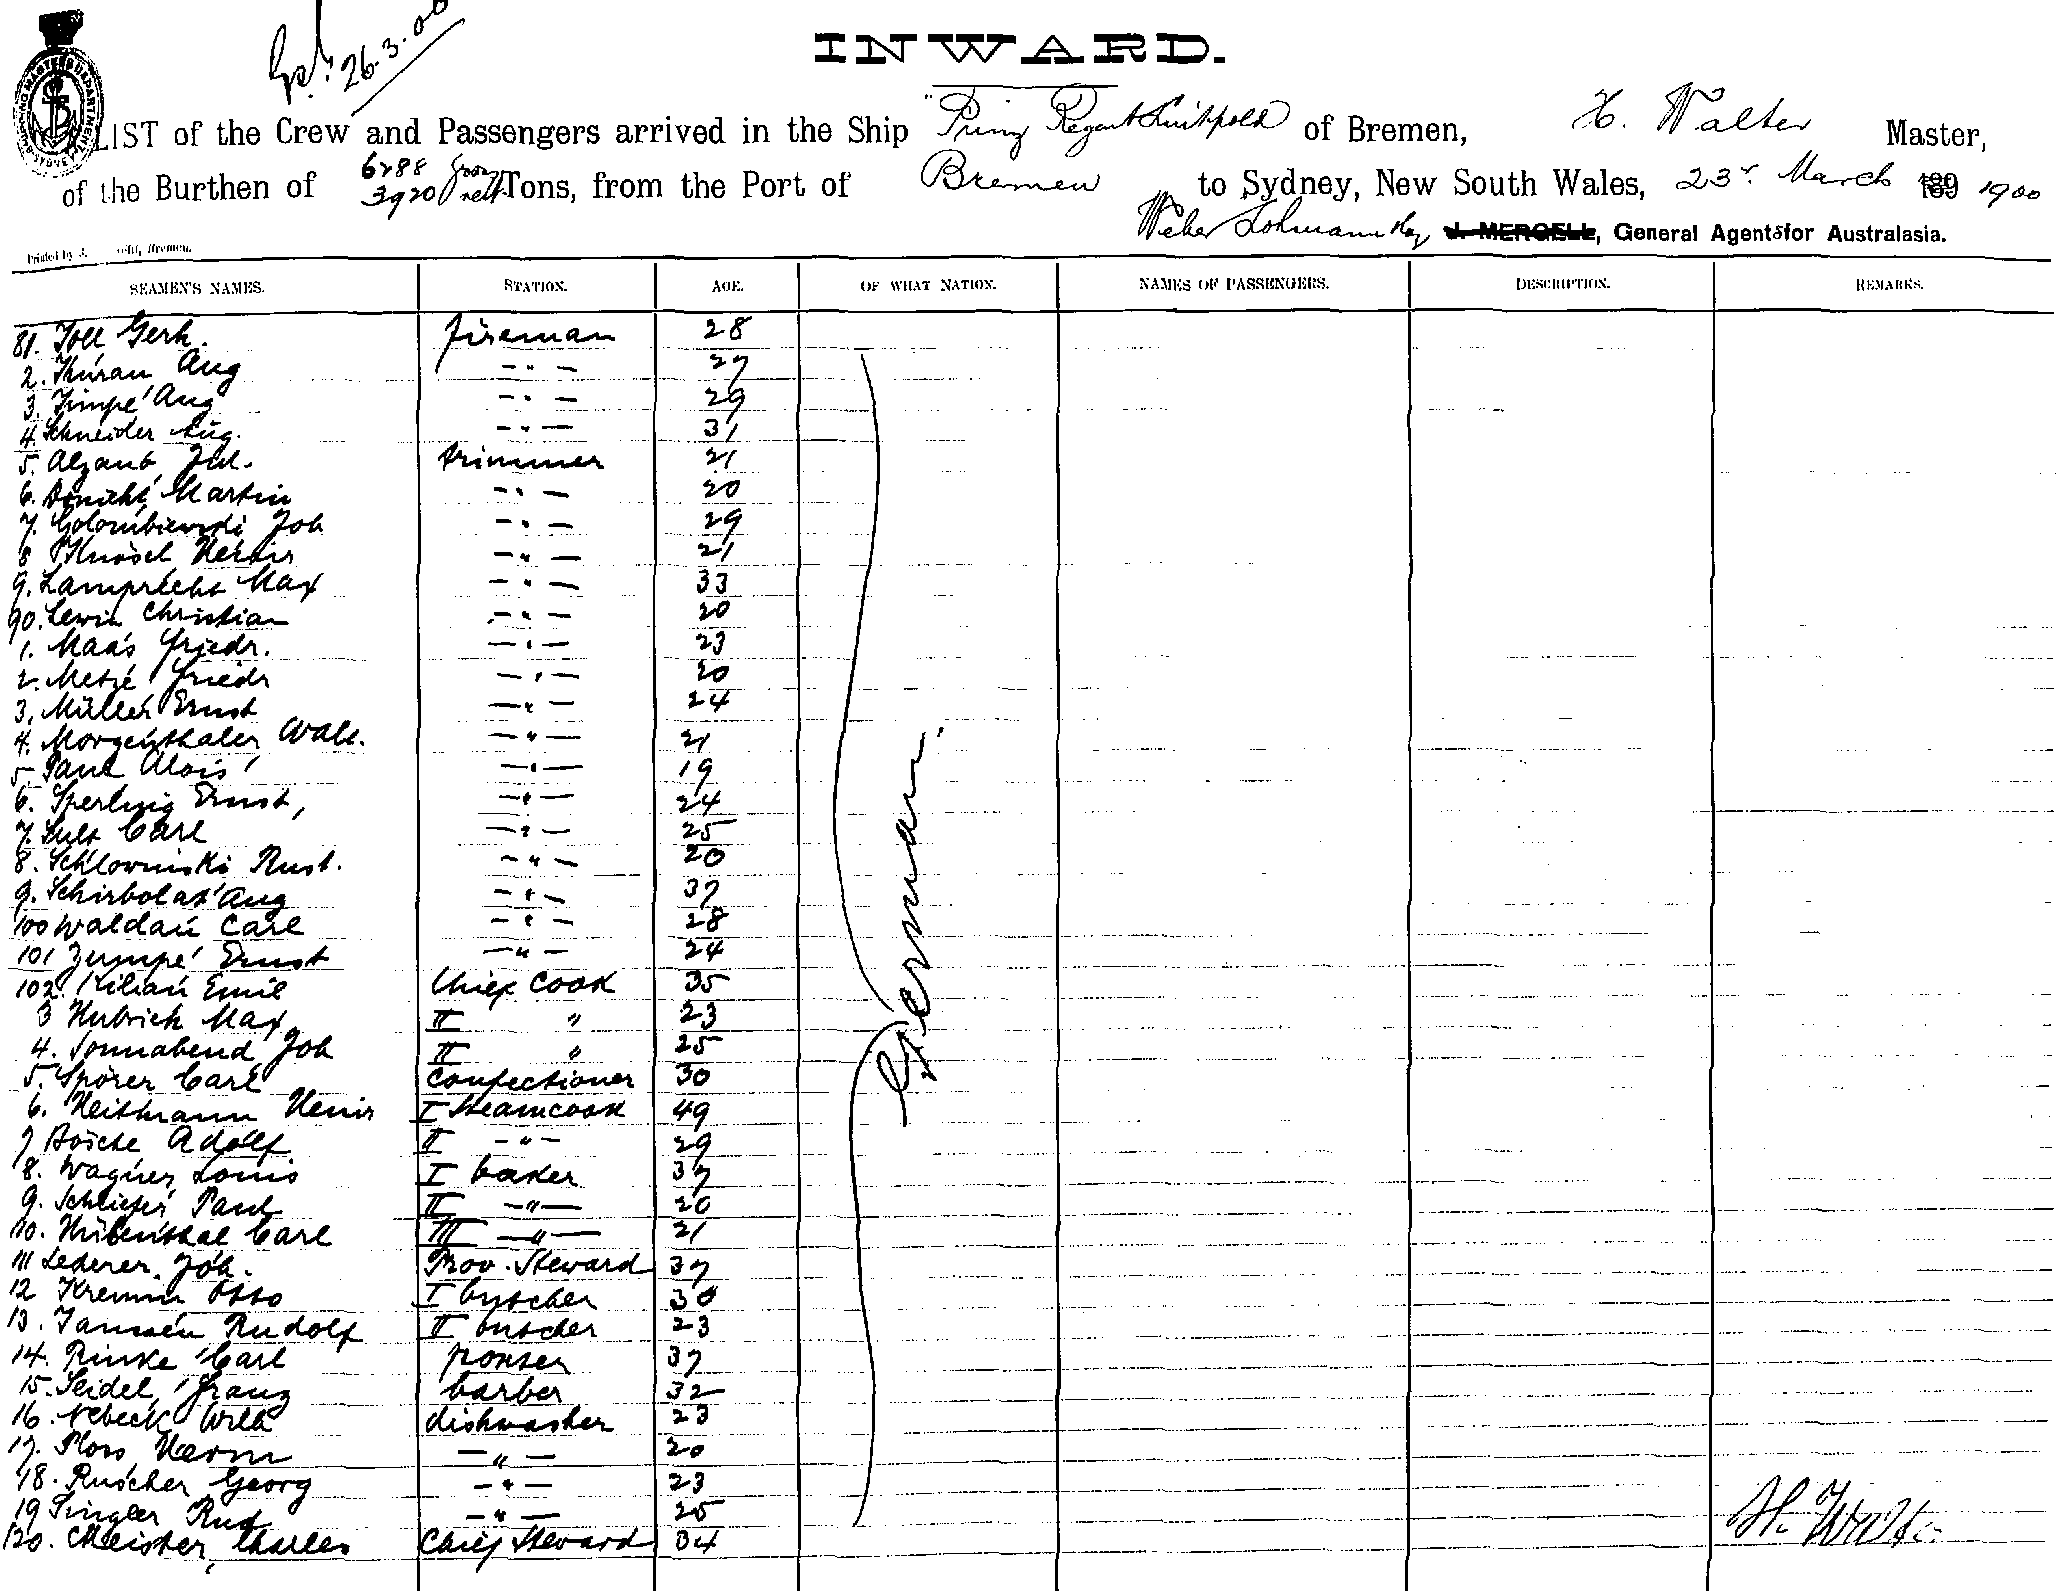 26.3.00
INWARD.
LIST of the Crew and Passengers arrived in the Ship "Prinz Regent Luitpold of Bremen, H. Walter Master,
of the Burthen of 6288 gross 3920 nett Tons, from the Port of Bremen to Sydney, New South Wales, 23r. March 189 1900
Weber Lohmann & Coy J. MERGELL, General Agents for Australasia.
Printed by J. Bremen.
SEAMEN'S NAMES. STATION. AGE. OF WHAT NATION. NAMES OF PASSENGERS. DESCRIPTION. REMARKS.
81. Toll Gerh. fireman 28
2. Thurau Aug -"- 27
3. Timpe Aug -"- 29
4. Schneider Aug. -"- 31
5. Jul. trimmer 21
6. Martin -"- 20
7. Golombiewski Joh -"- 29
8 Heinr -"- 21
9. Lamprecht Max -"- 33
90. Lewin Christian -"- 20
1. Maas Friedr. -"- 23
2. Metze Friedr -"- 20
3. Müller Ernst -"- 24
4. Morgenthaler Walt. -"- 21
5. Paul Alois -"- 19
6. Sperling Ernst, -"- 24
7. Sult Carl -"- 25
8. Schlowinski Rust. -"- 20
9. Schirbolat Aug -"- 37
100 Waldau Carl -"- 28
101 Zumpe Ernst -"- 24
102. Kilian Emil Chief Cook 35
3 Hubrich Max II " 23
4. Sonnabend Joh II " 25
5. Spörer Carl Confectioner 30
6. Heitmann Heinr I Steamcook 49
7 Adolf II -"- 29
8. Wagner, Louis I baker 37
9. Schliefer Paul II -"- 20
10. Hübenthal Carl III -"- 21
111 Lederer Joh. Prov. Steward 37
12 Kremin Otto I butscher 30
13. Janssen Rudolf II butscher 23
14. Rinke Carl porter 37
15. Seidel, Franz barber 32
16. Nebeck Wilh dishwasher 23
17. Ploss Herm -"- 20
18. Ruscher Georg -"- 23
19 Singler Rud -"- 25
120. Meister, Charles Chief Steward 34
German.
H. Walter